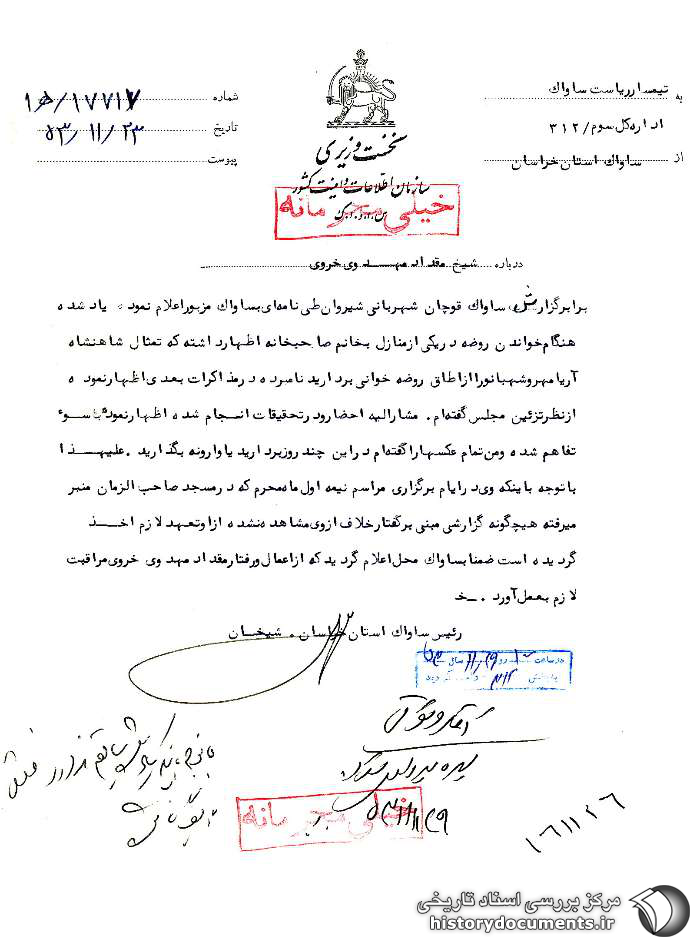 به تیمسار ریاست ساواک
اداره کل سوم/۳۱۲
از ساواک استان خراسان
نخست وزیری
سازمان اطلاعات و امنیت کشور
س.ا.و.ا.ک
شماره
تاریخ ۵۳/۱۱/۲۳
پیوست
خیلی محرمانه
درباره شیخ مقداد مهدوی خروی
برابر گزارش ساواک قوچان شهربانی شیروان طی نامه‌ای بساواک مزبور اعلام نموده یاد شده
هنگام خواندن روضه در یکی از منازل بخانم صاحبخانه اظهار داشته که تمثال شاهنشاه
آریامهر و شهبانو را از اطاق روضه خوانی بردارید نامبرده در مذاکرات بعدی اظهار نموده
از نظر تزئین مجلس گفته‌ام. مشارالیه احضار و در تحقیقات انجام شده اظهار نموده با سوء
تفاهم شده و من تمام عکسها را گفته‌ام در این چند روز بردارید یا وارونه بگذارید. علیهذا
با توجه باینکه وی در ایام برگزاری مراسم نیمه اول ماه محرم که در مسجد صاحب الزمان منبر
میرفته هیچگونه گزارشی مبنی بر گفتار خلاف از وی مشاهده نشده از او تعهد لازم اخذ
گردیده است ضمنا بساواک محل اعلام گردید که از اعمال و رفتار مقداد مهدوی خروی مراقبت
لازم بعمل آورد. خ
رئیس ساواک استان خراسان. شیخان
در ساعت
خیلی محرمانه
۱۶۱۱۲۶
مرکز بررسی اسناد تاریخی
historydocuments.ir